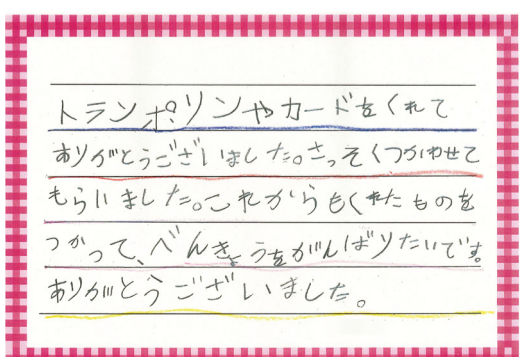 トランポリンやカードをくれて
ありがとうございました。さっそくつかわせて
もらいました。これからもくれたものを
つかって、べんきょうをがんばりたいです。
ありがとうございました。